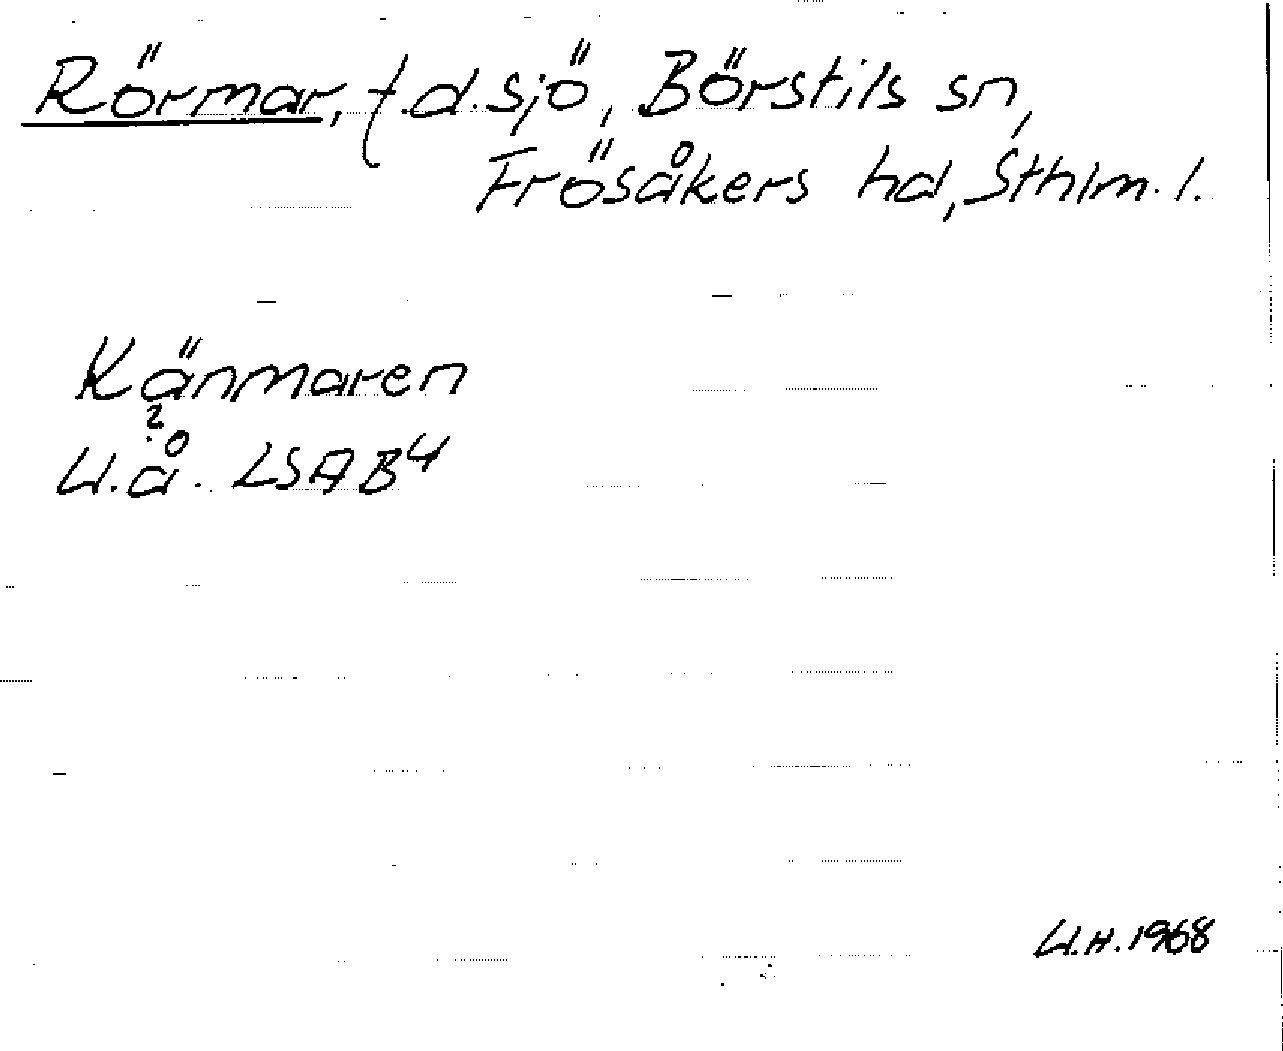 Rörmar, f.d. sjö, Börstils sn,
Frösåkers hd, Sthlm. l.
Känmaren
?
U.å. LSA B4
U.H. 1968